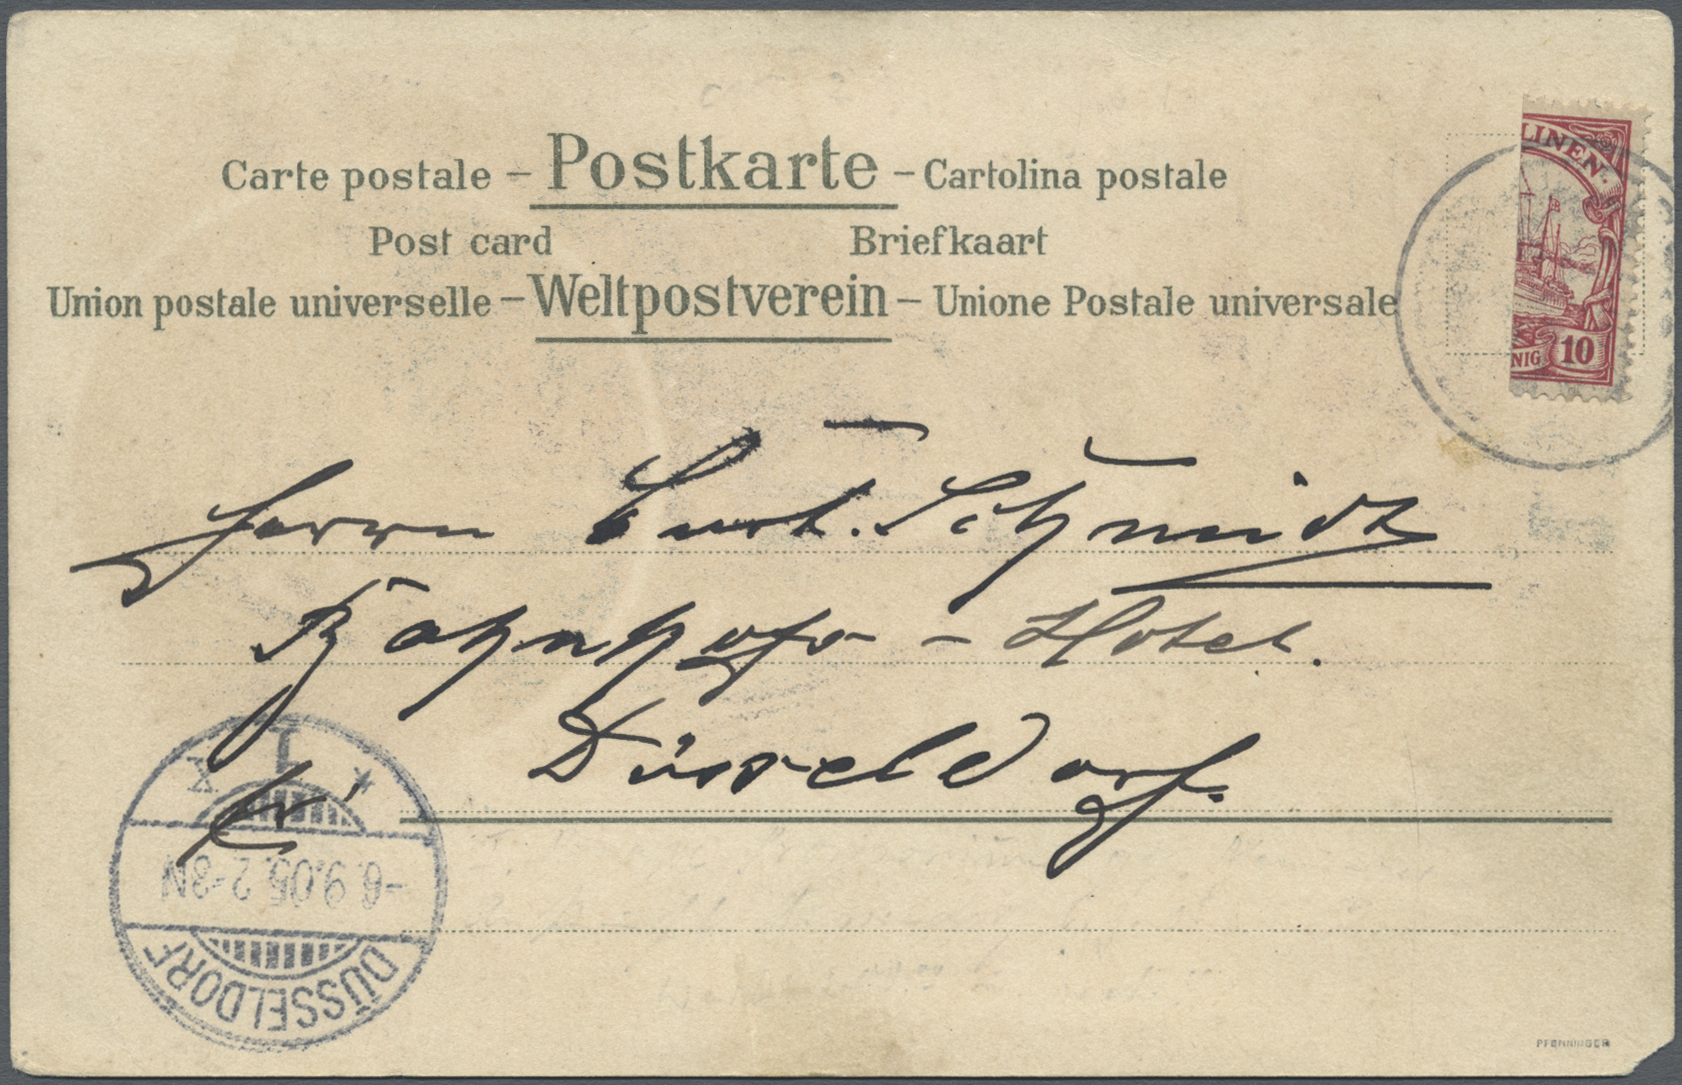 Carte postale – Postkarte – Cartolina postale
Post card Briefkaart
Union postale universelle – Weltpostverein – Unione Postale universale
LINEN.
NIG 10
Herrn Curt. Schmidt
Bahnhofs - Hotel.
Düsseldorf.
* 1
-6.9.05.2-3N
DÜSSELDORF
PFENNINGER